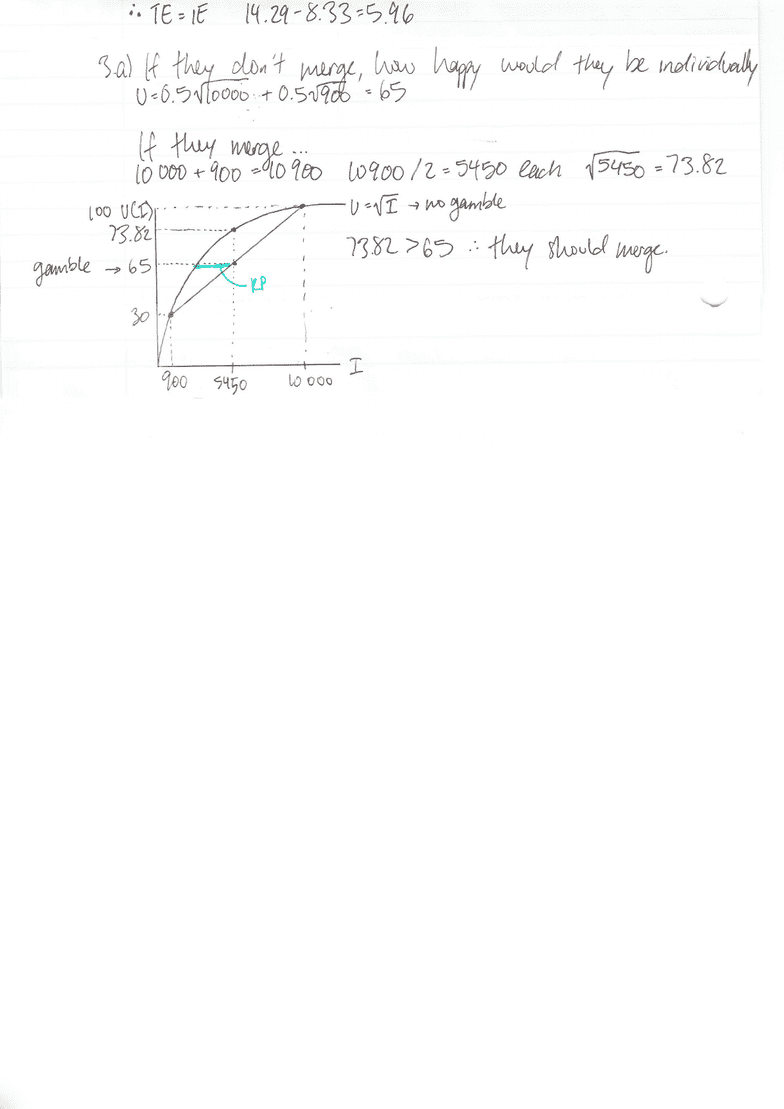 ∴ TE = IE 14.29 - 8.33 = 5.96
3.a) If they don't merge, how happy would they be individually
U = 0.5√10000 + 0.5√900 = 65
If they merge ...
10 000 + 900 = 10 900 10900 / 2 = 5450 each √5450 = 73.82
100 U(I) U = √I → no gamble
73.82
73.82 > 65 ∴ they should merge.
gamble → 65
RP
30
900 5450 10 000 I